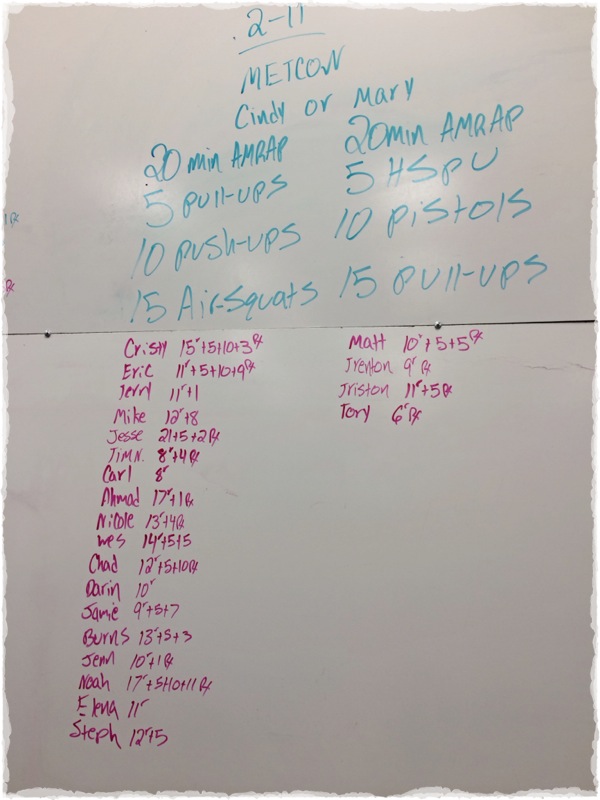 2-11
METCON
Cindy or Mary
20 min AMRAP
5 Pull-ups
10 Push-ups
15 Air-Squats
20min AMRAP
5 HSPU
10 Pistols
15 Pull-ups
Cristy 15r+5+10+3 Rx
Eric 11r+5+10+9 Rx
Jerry 11r+1
Mike 12r+8
Jesse 21+5+2 Rx
Jim N. 8r+4 Rx
Carl 8r
Ahmad 17r+1 Rx
Nicole 13r+4 Rx
Wes 14r+5+5
Chad 12r+5+10 Rx
Darin 10r
Jamie 9r+5+7
Burns 13r+5+3
Jenn 10r+1 Rx
Noah 17r+5+10+11 Rx
Elena 11r
Steph 12r+5
Matt 10r+5+5 Rx
Trenton 9r Rx
Triston 11r+5 Rx
Tory 6r Rx
Rx
Rx